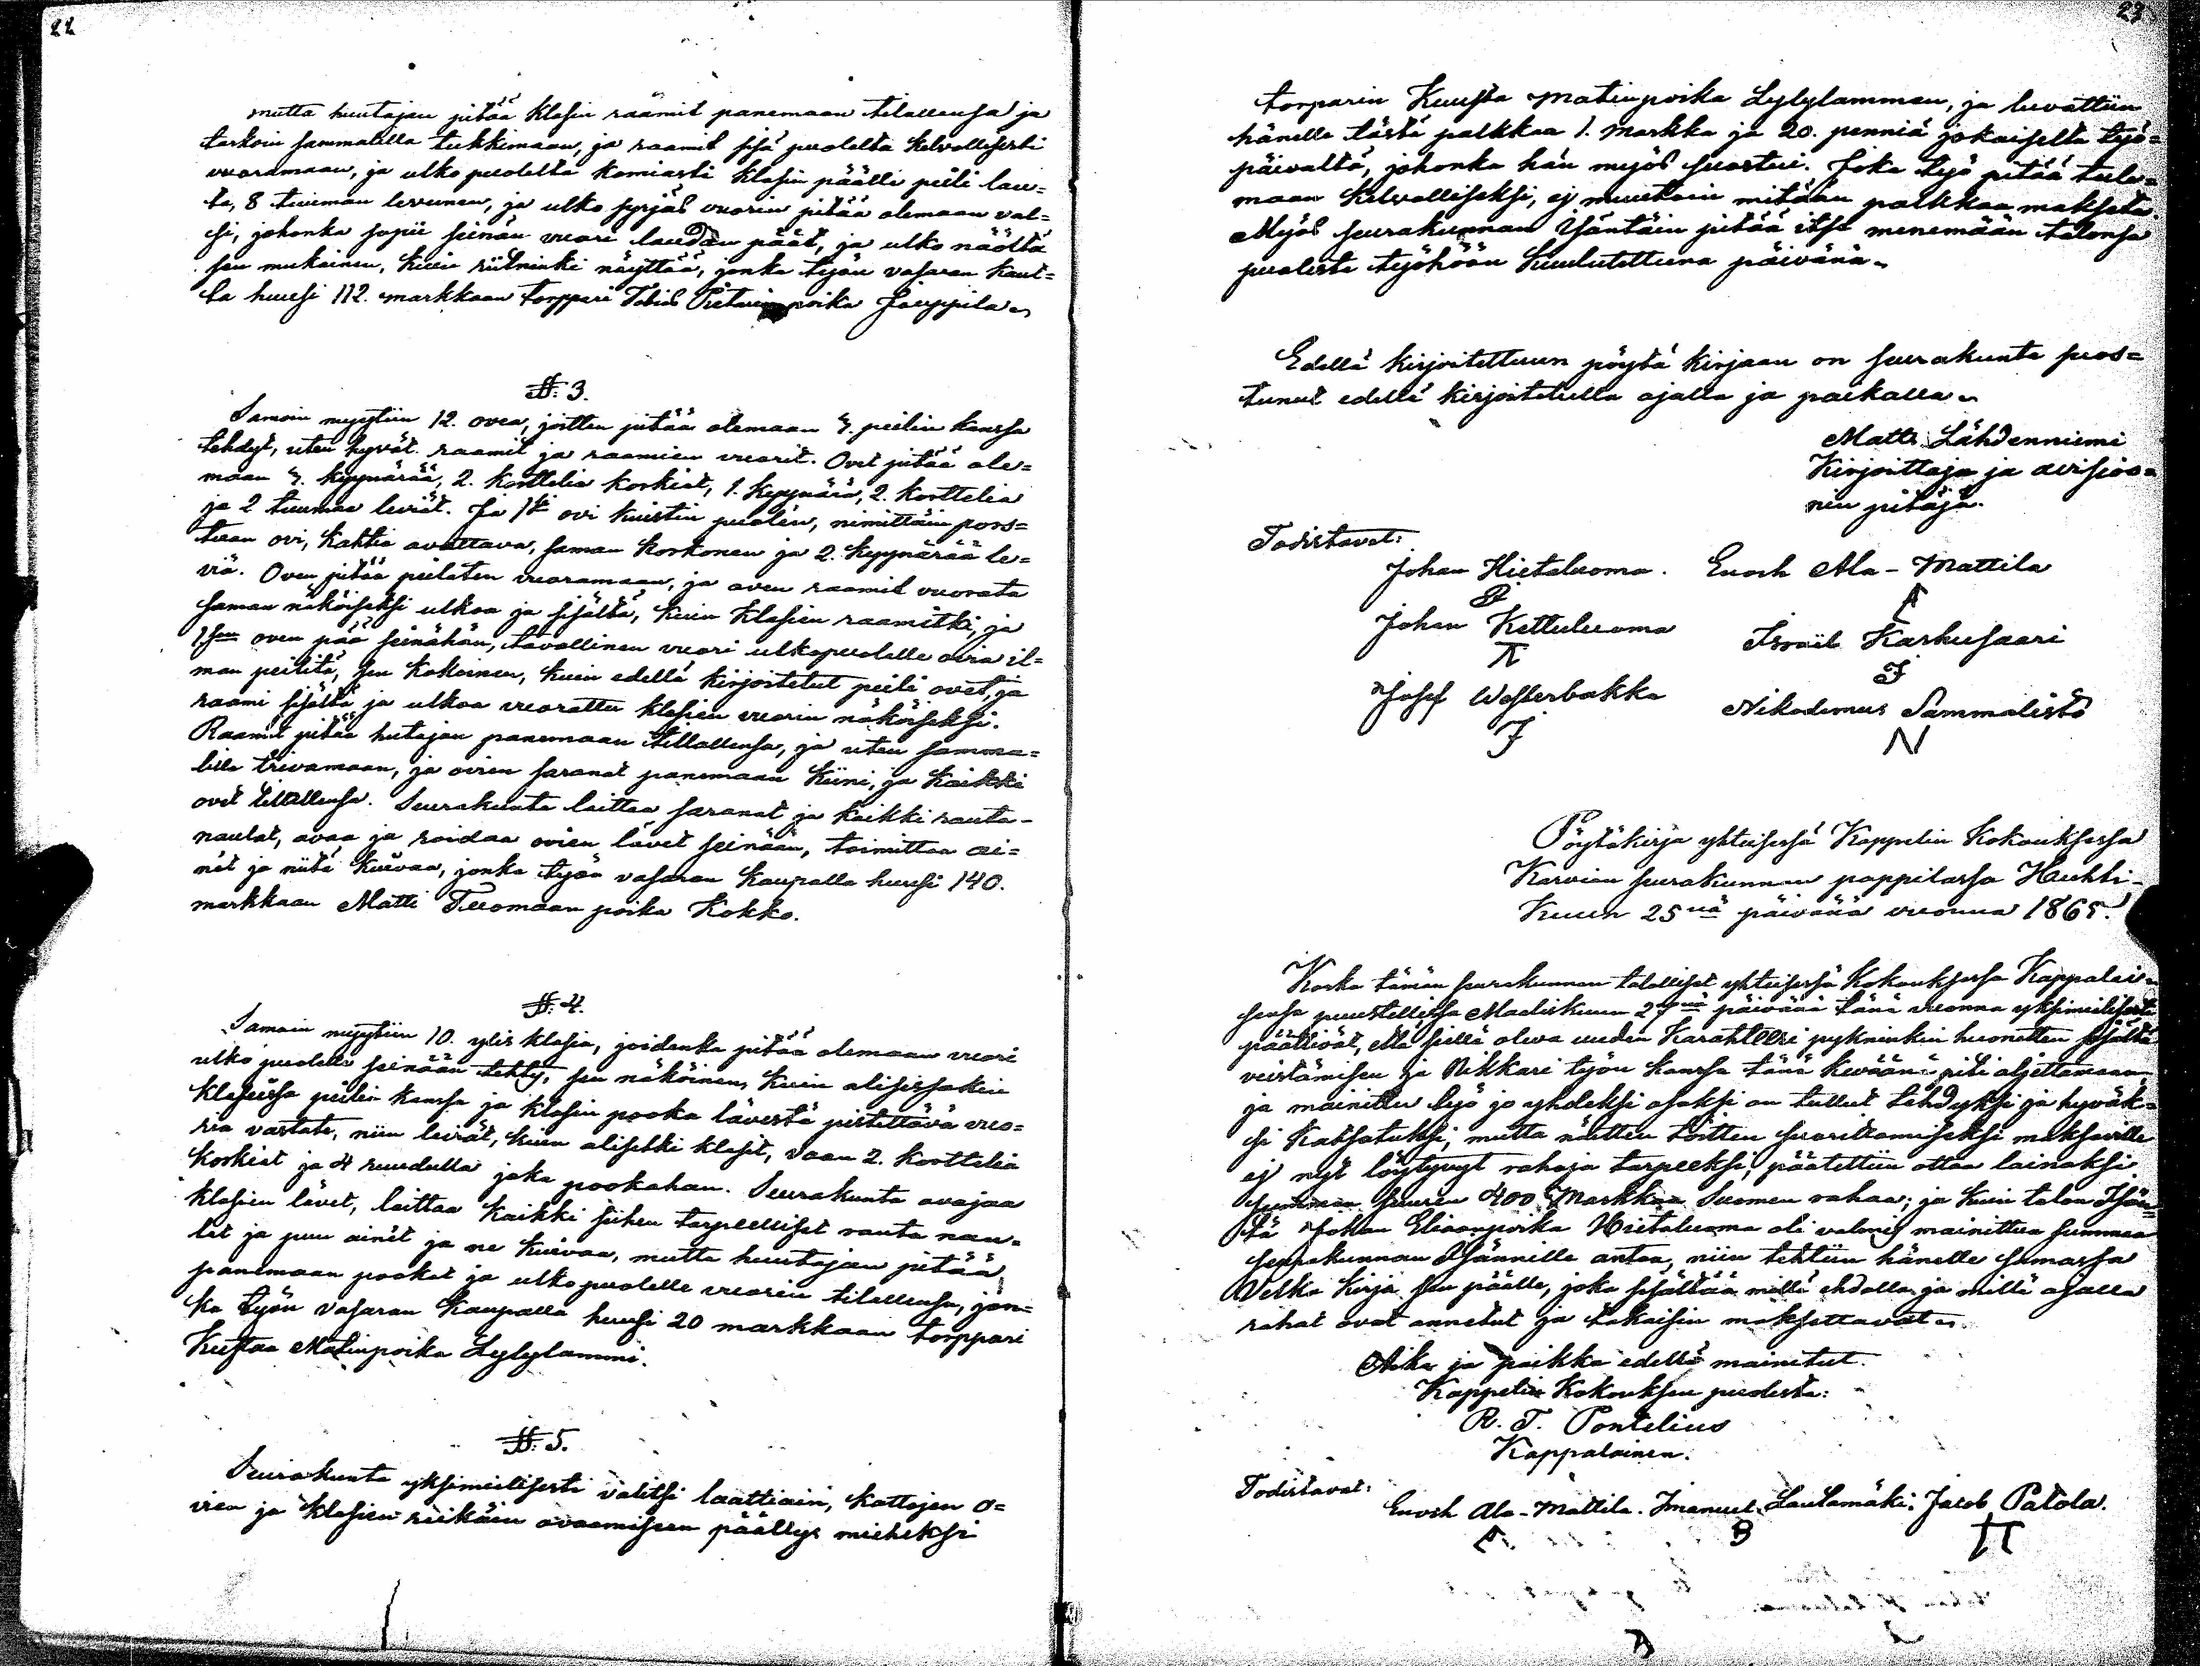 22
mutta huutajan pitää klasin räämit panemaan tilallensa ja
tarkoin sammalilla tukkimaan, ja raamit sisä puolelta kelvollisesti
vuoramaan, ja ulko puolelta komiasti klasin päälle peili lau=
ta, 8 tuuman levunen, ja ulko syrjäs vuorin pitää olemaan val=
si, johonka sopii seinän vuori laudan päät, ja ulko näöltä
sen mukainen, kuin riitninki näyttää, jonka työn vasaran kaut=
ta huusi 112. markkaan torppari Tobias Pietarin poika Jouppila
§. 3.
Samoin myytiin 12. ovea, joitten pitää olemaan 4. peilin kanssa
tehdyt, uten hyvät raamit ja raamien vuorit. Ovet pitää ole=
maan 4. kyynärää, 2. korttelia korkiat, 1. kyynärä, 2. korttelia
ja 2 tuumaa leviät. Ja 1ksi ovi kuistin puolen, nimittäin pors=
tuan ovi, kahtia avattava, saman korkonen ja 2. kyynärää le=
viä. Oven pitää peilaten vuoramaan, ja oven raamit vuorata
saman näköiseksi ulkoa ja sisältä, kuin klasien raamitki, ja
1sen oven pää seinähän, tavallinen vuori ulkopuolelle ovia il=
man peilitä, sen kokoinen, kuin edellä kirjoitetut peili ovet, ja
raami sisältä ja ulkoa vuorattu klasien vuorin näköiseksi.
Raamit pitää hutajan panemaan tillallensa, ja uten samma=
lilla trivamaan, ja ovien saranat panemaan kiini, ja kaikki
ovet tillallensa. Seurakunta laittaa saranat ja kaikki rauta-
naulat, avaa ja roidaa ovien lävet seinään, toimittaa ai=
net ja niitä kuivaa, jonka työn vasaran kaupalla huusi 140.
markkaan Matti Tuomaan poika Kokko.
§. 4.
Samoin myytiin 10. ylis klasia, joidenka pitää olemaan vuori
ulko puolelle seinään tehty, sen näköinen, kuin alisissakin
klaseissa peilin kanssa ja klasin pooka lävestä pistettävä vuo=
ria vastate, niin leviät, kuin alisetki klasit, vaan 2. korttelia
korkiat ja 4 ruudulla joka pookahan. Seurakunta avajaa
klasien lävet, laittaa kaikki siihen tarpeelliset rauta nau=
lat ja puu ainet ja ne kuivaa, mutta huutajan pitää
panemaan pookat ja ulko puolelle vuorin tilallensa, jon=
ka työn vasaran kaupalla huusi 20 markkaan torppari
Kustaa Matinpoika Lylylammi.
§. 5.
Seurakunta yksimielisesti valitsi laattiain, kattojen o=
vien ja klasien reikäin avaamiseen päällys mieheksi
23
torparin Kuusta Matinpoika Lylylamman, ja luvattiin
hänelle tästä palkkaa 1. markka ja 20. penniä jokaiselta työ=
päivältä, johonka hän myös suostui. Joka työ pitää tule=
maan kelvolliseksi, ej muutoin mitään palkkaa maksata.
Myös seurakunnan Isäntäin pitää itse menemään talonsa
puolesta työhöön kuulutettuna päivänä
Edellä kirjoitettuun pöytä kirjaan on seurakunta suos=
tunut edellä kirjoitetulla ajalla ja paikalla
Matts Lähdenniemi
Kirjoittaja ja avisioo=
nin pitäjä.
Todistavat:
Johan Hietaluoma. Enosh Ala-Mattila
Johan Kettuluoma Israel Karhusaari
Josef Westerbakka Nikodemus Sammalistö
J N
Pöytäkirja yhteisessä Kappelin Kokouksessa
Karvian seurakunnan pappilassa Huhti-
Kuun 25nä päivänä vuonna 1865.
Koska tämän seurakunnan talolliset yhteisessä Kokouksessa Kappalai=
sensa puustellissa Maaliskuun päivänä tänä vuonna yksimielisesti
päättivät, että siellä oleva uuden Karahteeri pykninkin huonetten sisältä
veistämisen ja Nikkari työn kanssa tänä kevään piti aljettamaan,
ja mainittu työ jo yhdeksi osaksi on tullut tehdyksi ja hyväk=
si katsotuksi, mutta näitten töitten suorittamiseksi maksoille
ej nyt löytynyt rahoja tarpeeksi, päätettiin ottaa lainaksi
summan suuren 400 Markkaa Suomen rahaa; ja kuin talon Isän=
tä Johan Eliaanpoika Hietaluoma oli valmis mainittua summaa
seurakunnan Isännille antaa, niin tehtiin hänelle samassa
Velka kirja sen päälle, joka sisältää millä ehdolla ja millä ajalla
rahat ovat annetut ja takaisin maksettavat
Aika ja paikka edellä mainitut.
Kappelin Kokouksen puolesta:
R. T. Pontelius
Kappalainen.
Todistavat:
Enosh Ala-Mattila. Imanuel Lautamäki. Jacob Patola.
B